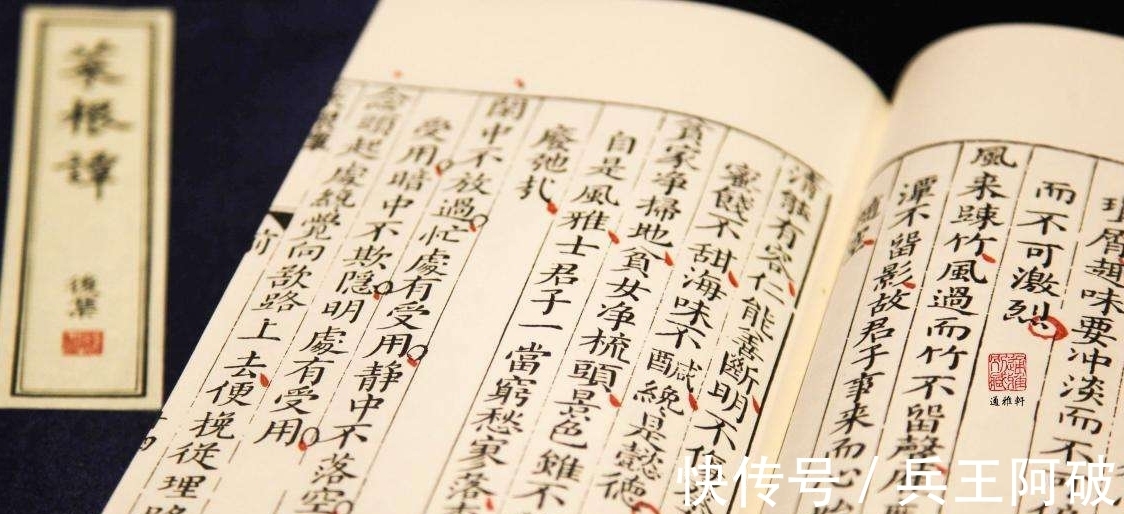 菜根譚
後集
屑趣味要冲淡而不
而不可激烈
風来踈竹風過而竹不留聲
潭不留影故君子事来而心始
清能有容仁能善斷明不傷
蜜餞不甜海味不醎纔是懿德
貧家净掃地貧女净梳頭景色雖不
自是風雅士君子一當窮愁寥落
廢弛扎
閑中不放過忙處有受用静中不落空
受用暗中不欺隐明處有受用
念頭起處纔覺向欲路上去便挽從理路
通雅軒
快传号 / 兵王阿破